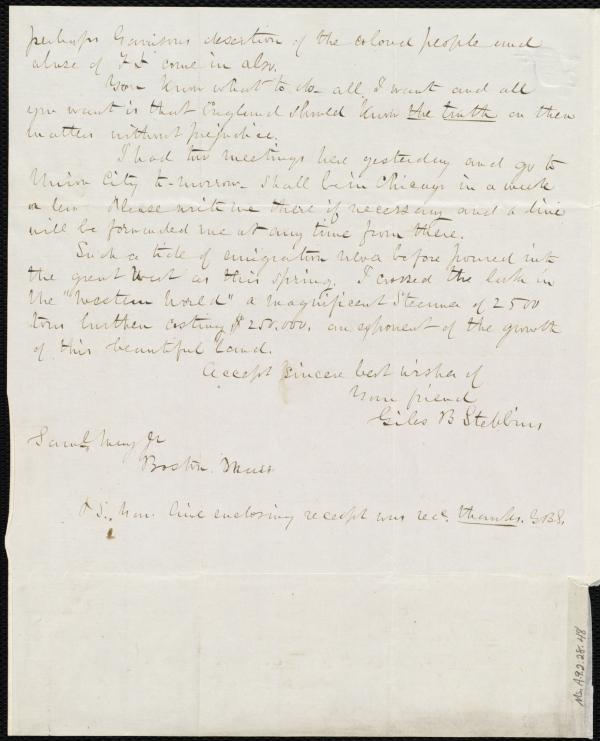 perhaps Garrisons desertion of the colored people and
abuse of F D come in also.
You know what to do all I want and all
you want is that England should know the truth on these
matters without prejudice.
I had two meetings here yesterday and go to
Union City to-morrow. Shall be in Chicago in a week
or less. Please write me there if necessary and a line
will be forwarded me at any time from there.
Such a tide of emigration never before poured into
the great West as this spring. I crossed the lake in
the "Western World" a magnificent Steamer of 2500
tons burthen costing $250.000, an exponent of the growth
of this beautiful land.
Accept sincere best wishes of
Your friend
Giles B Stebbins
Saml. May Jr
Boston. Mass
P S., Your line enclosing receipt was rec. thanks. G.B.S.
Ms. A.9.2.28.48